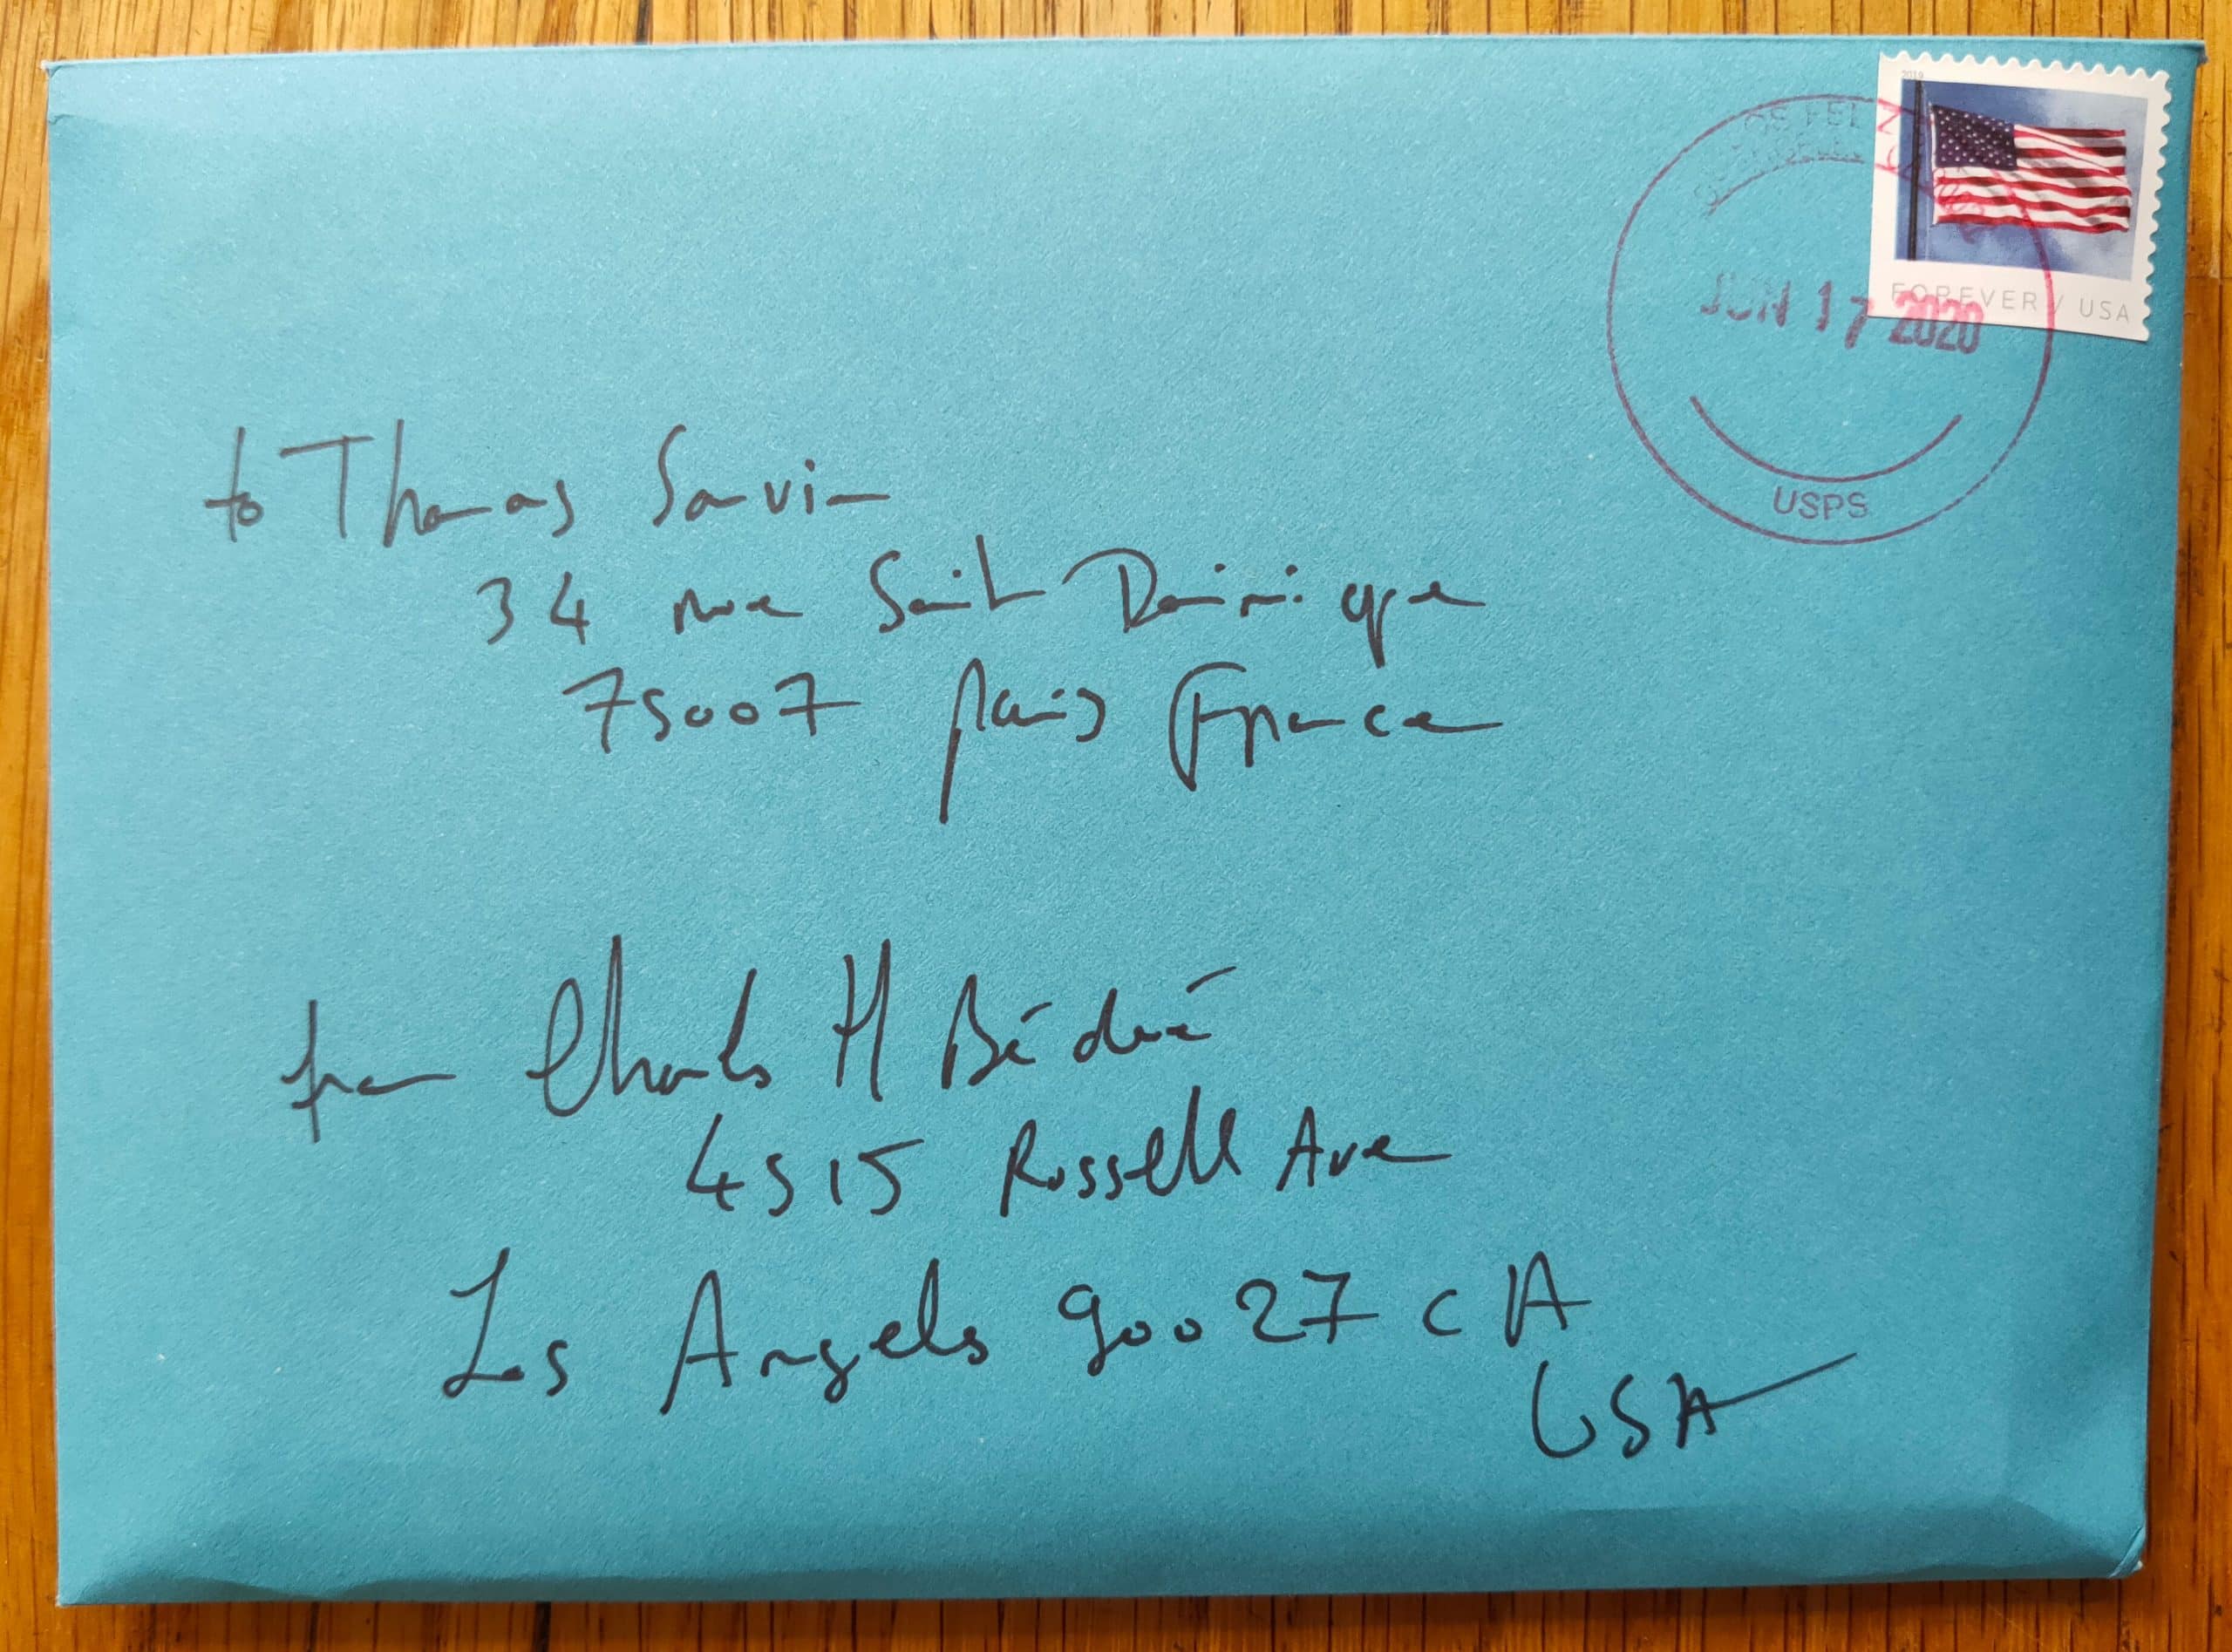 2019
FOREVER / USA
JUN 17 2020
USPS
to Thomas Sauvin
34 rue Saint Dominique
75007 paris France
from Charles H Bédué
4515 Russell Ave
Los Angeles 90027 CA
USA